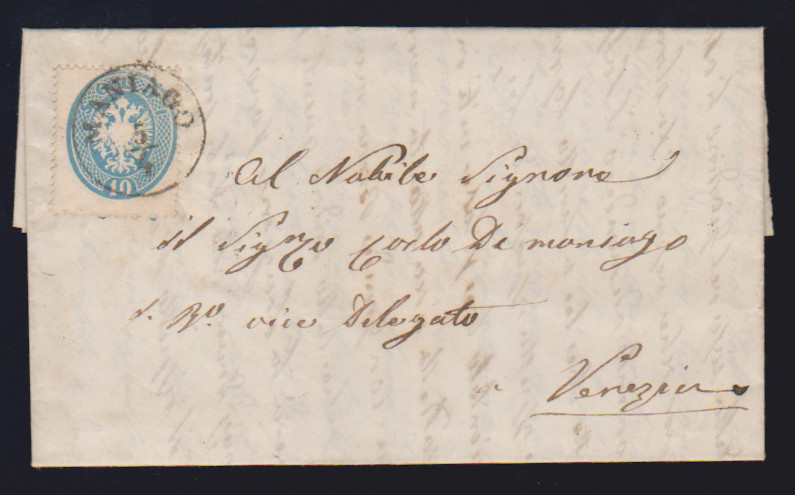 MANIAGO
10
Al Nobile Signore
il Sig.r Co Carlo Di Maniago
I. R.o vice Delegato
a Venezia